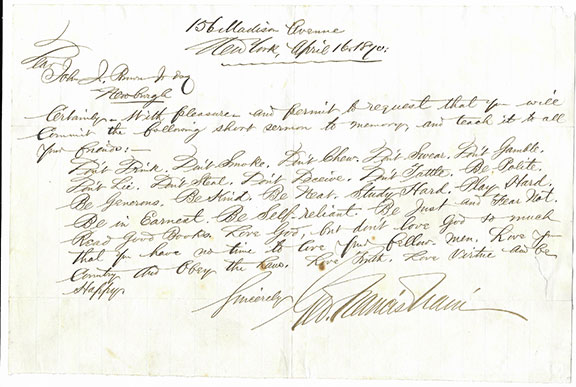 156 Madison Avenue
New York, April 16. 1870:
Dear
John J. Jr
Newburgh
Certainly. With pleasure and permit to request that you will
Commit the following short sermon to memory, and teach it to all
your friends:—
Don't Drink. Don't Smoke. Don't Chew. Don't Swear. Don't Gamble.
Don't Lie. Don't Steal. Don't Deceive. Don't Tattle. Be Polite.
Be Generous. Be Kind. Be Neat. Study Hard. Play Hard.
Be in Earnest. Be Self-reliant. Be Just and Fear Not.
Read Good Books. Love God, but don't love God so much
that you have no time to love your fellow men. Love your
Country and Obey the laws. Love Truth. Love Virtue and be
Happy.
Sincerely
Geo. Francis Train